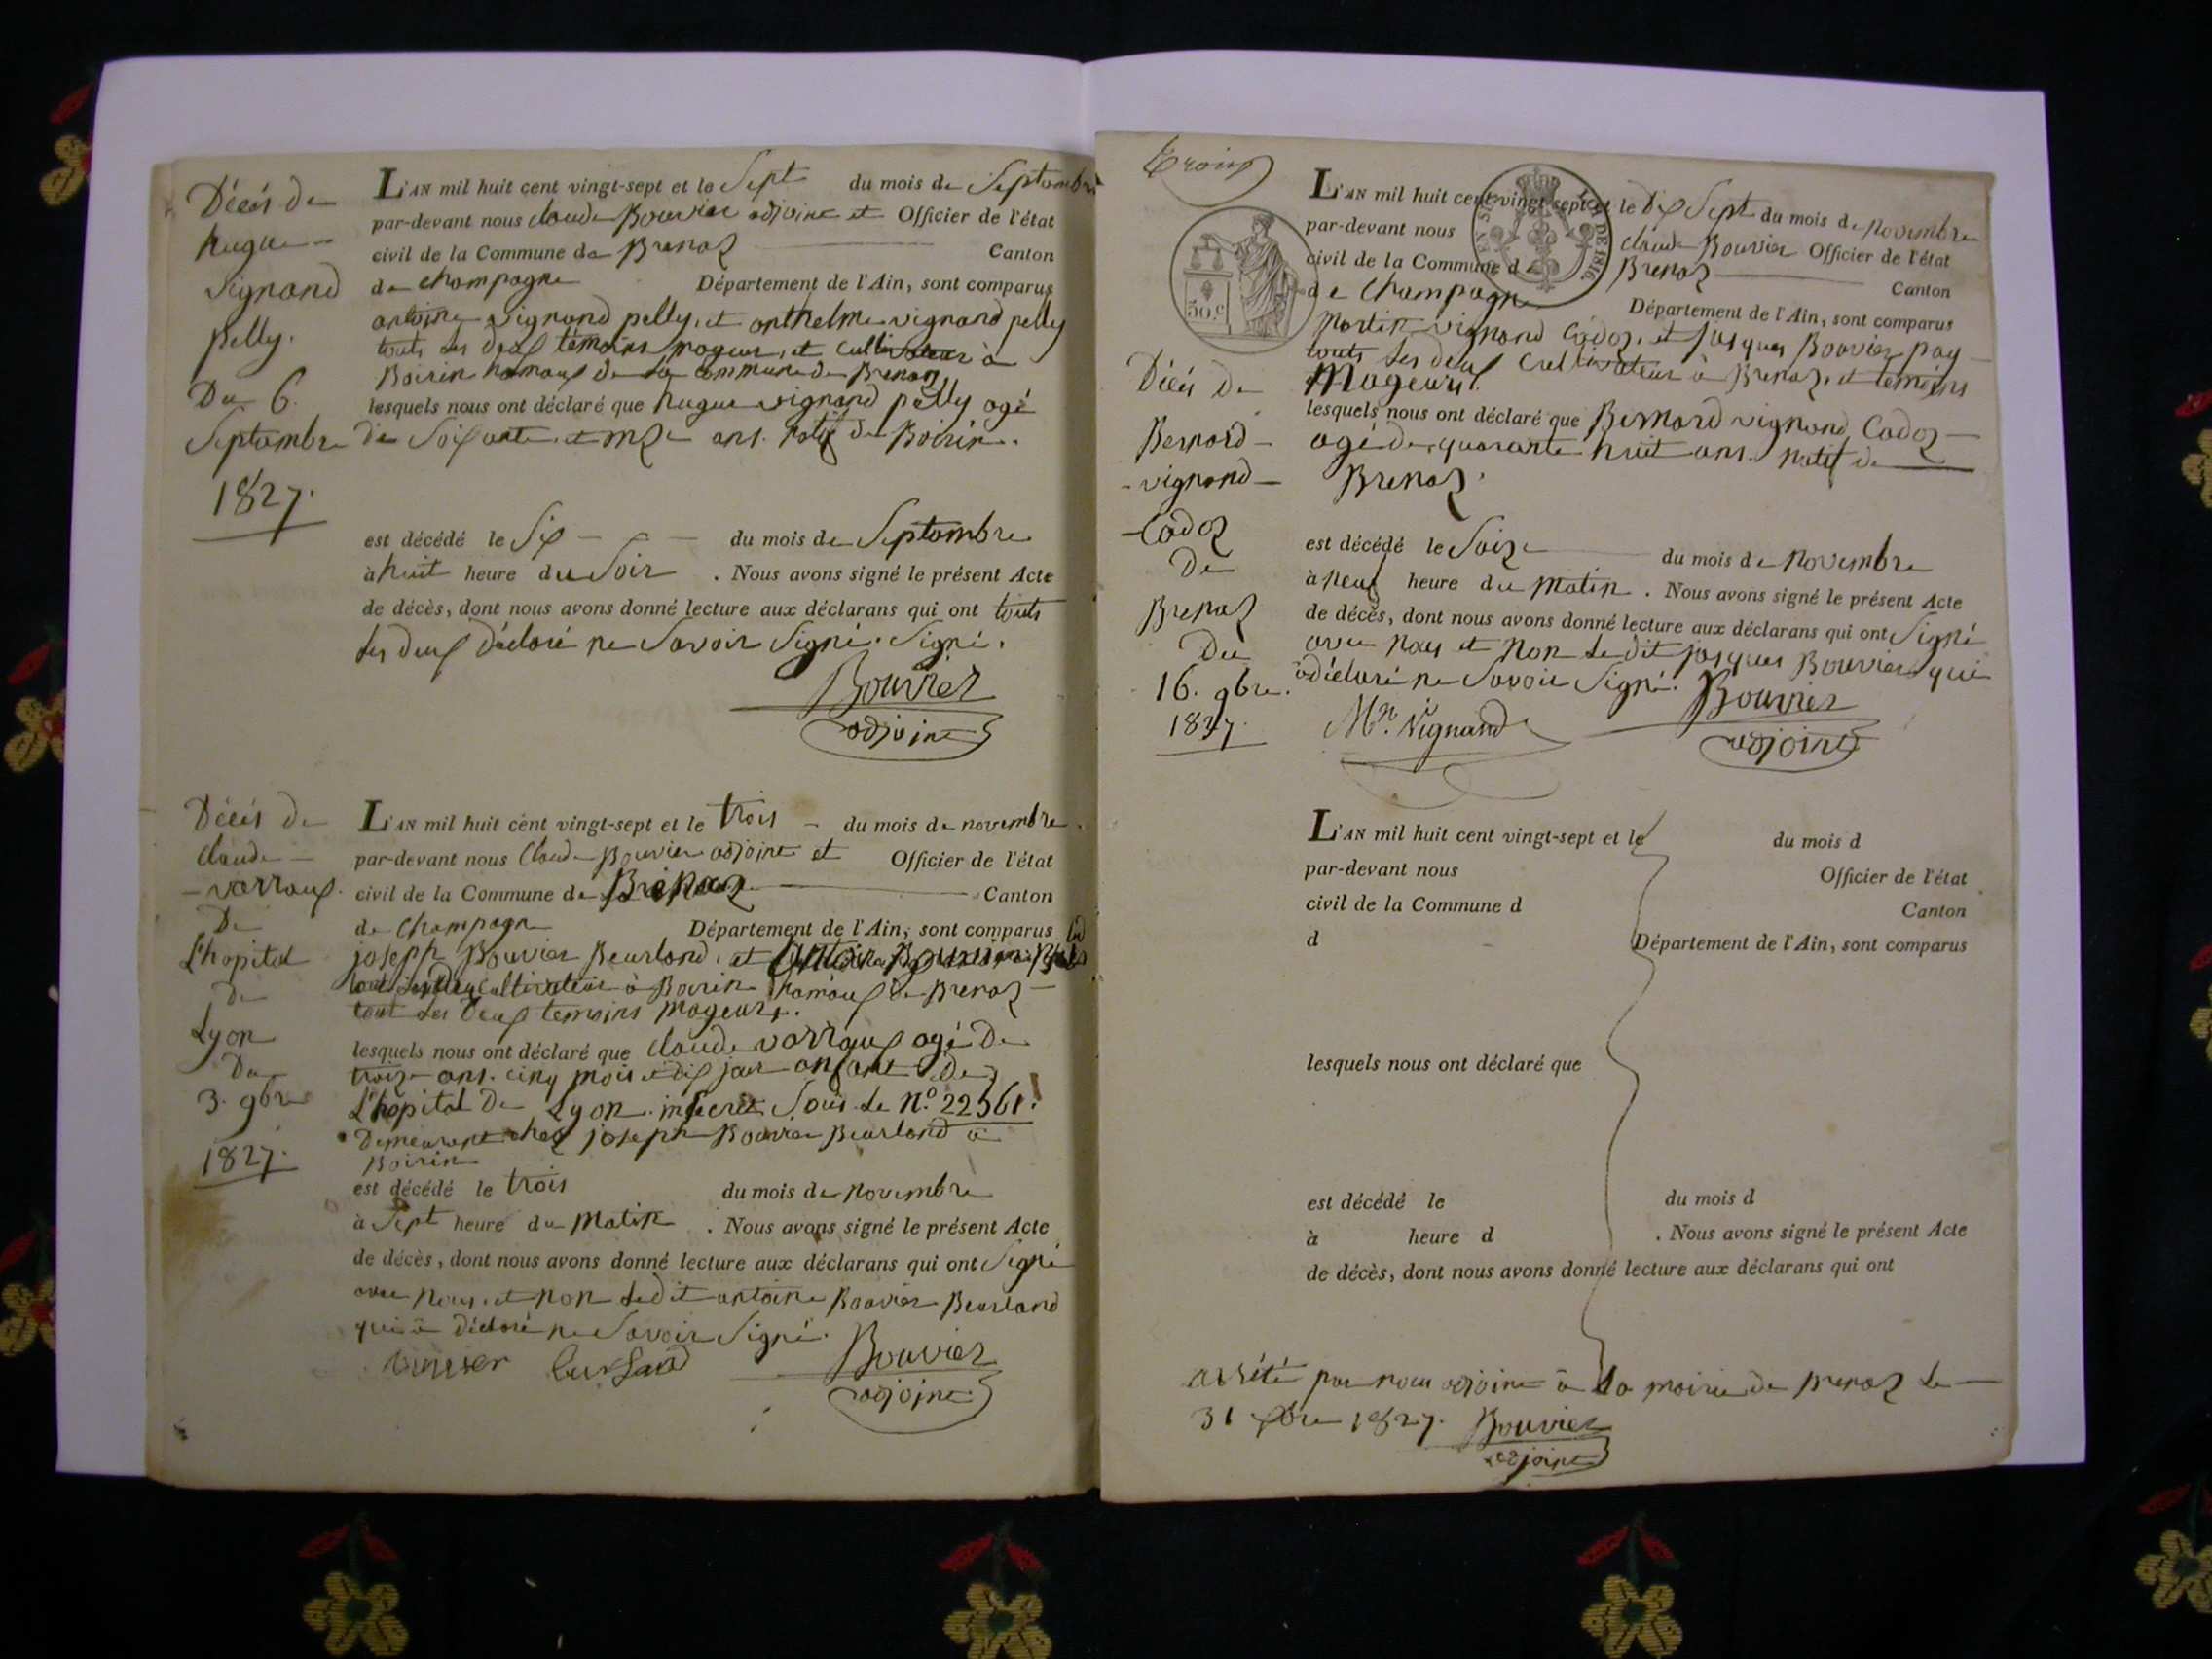 Décés de
hugue
vignand
pelly.
Du 6.
Septembre
1827.
L'AN mil huit cent vingt-sept et le Sept du mois de Septembre
par-devant nous claude Bouvier adjoint et Officier de l'état
civil de la Commune de Brenaz Canton
de champagne Département de l'Ain, sont comparus
antoine vignand pelly, et anthelme vignand pelly
touts les deux témoins mageur, et cultivateur à
Boirin hamaux de la commune de Brenaz
lesquels nous ont déclaré que hugue vignand pelly agé
de Soixante et onze ans. natif de Boirin.
est décédé le Six du mois de Septembre
à huit heure du Soir . Nous avons signé le présent Acte
de décès, dont nous avons donné lecture aux déclarans qui ont touts
les deux déclaré ne Savoir Signé. Signé.
Bouvier
adjoint
Décés de
claude
varraux.
De
L'hopital
de
Lyon
Du
3. 9bre
1827.
L'AN mil huit cent vingt-sept et le trois du mois de novembre
par-devant nous Claude Bouvier adjoint et Officier de l'état
civil de la Commune de Brenaz Canton
de Champagne Département de l'Ain, sont comparus
joseph Bouvier Beurland, et Antoine Bouvier
tout les deux cultivateur à Boirin hamaux de Brenaz
tout les deux temoins mageurs.
lesquels nous ont déclaré que claude varraux agé de
treize ans. cinq mois et dix jour enfant de
L'hopital de Lyon. inscrit Sous le N.° 22561.
Demeurant chez joseph Bouvier Beurland à
Boirin
est décédé le trois du mois de novembre
à Sept heure du matin . Nous avons signé le présent Acte
de décès, dont nous avons donné lecture aux déclarans qui ont Signé
avec nous, et non ledit antoine Bouvier Beurland
qui à déclaré ne Savoir Signé.
Bouvier
adjoint
50.c
L'AN mil huit cent vingt-sept et le dix Sept du mois de novembre
par-devant nous claude Bouvier Officier de l'état
civil de la Commune d Brenaz Canton
de Champagne Département de l'Ain, sont comparus
Martin vignand Cadoz, et jasques Bouvier pay
touts les deux cultivateur à Brenaz, et temoins
Mageurs.
lesquels nous ont déclaré que Bernard vignand Cadoz
agé de quarante huit ans. natif de
Brenaz.
Décés de
Bernard
vignand
Cadoz
De
Brenaz
Du
16. 9bre.
1827.
est décédé le Seize du mois de novembre
à neuf heure du matin . Nous avons signé le présent Acte
de décès, dont nous avons donné lecture aux déclarans qui ont Signé
avec nous et non ledit jasques Bouvier qui
à déclaré ne Savoir Signé.
Mn. Vignand
Bouvier
adjoint
L'AN mil huit cent vingt-sept et le du mois d
par-devant nous Officier de l'état
civil de la Commune d Canton
d Département de l'Ain, sont comparus
lesquels nous ont déclaré que
est décédé le du mois d
à heure d . Nous avons signé le présent Acte
de décès, dont nous avons donné lecture aux déclarans qui ont
arrêté par nous adjoint à la mairie de Brenaz le
31 Xbre 1827. Bouvier
adjoint